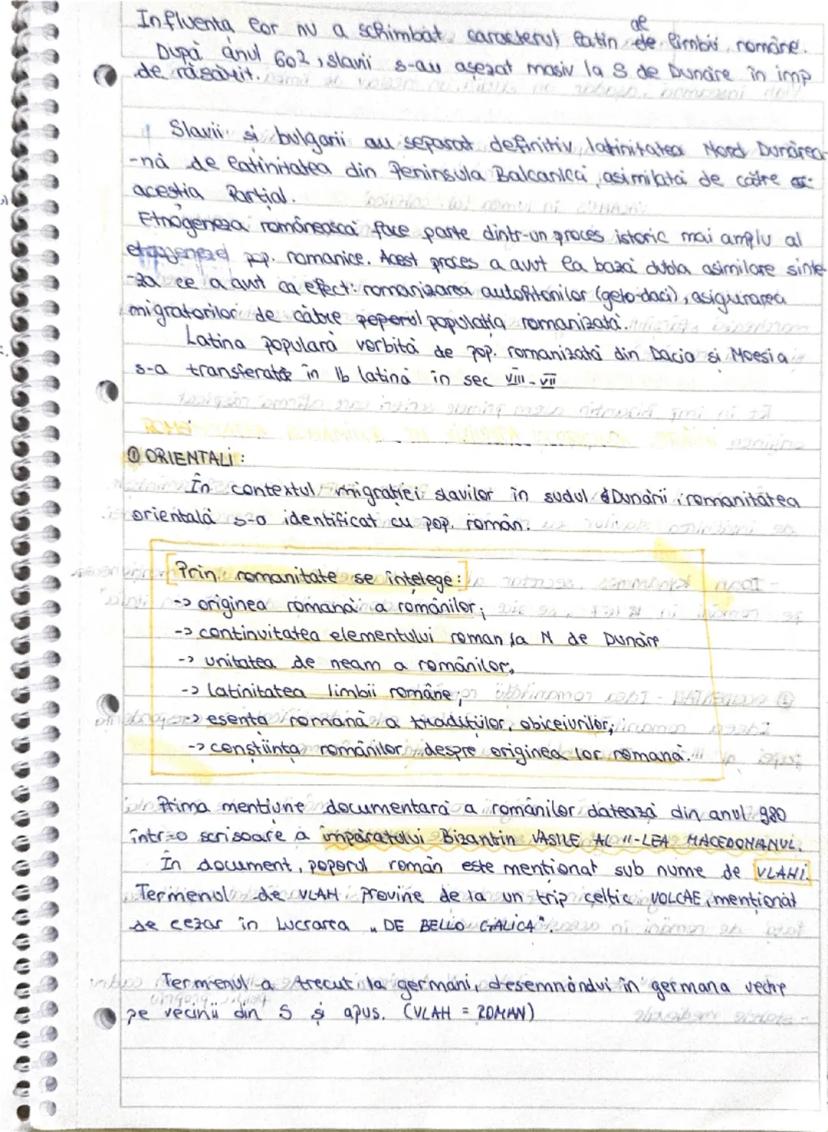 Influența lor nu a schimbat caracterul latin al limbii române.
După anul 602, slavii s-au așezat masiv la S de Dunăre în imp
de răsărit.
Slavii și bulgarii au separat definitiv latinitatea Nord Dunărea-
-nă de latinitatea din Peninsula Balcanică, asimilată de către
aceștia Parțial.
Etnogeneza românească face parte dintr-un proces istoric mai amplu al
etnogenezei pop. romanice. Acest proces a avut la bază dubla asimilare sinte-
-za ce a avut ca efect: romanizarea autohtonilor (geto-daci), asigurarea
migratorilor de către populația romanizată.
Latina populară vorbită de pop. romanizată din Dacia și Moesia
s-a transferat în lb latină în sec VIII-VII
① ORIENTALI:
În contextul migrației slavilor în sudul Dunării, romanitatea
orientală s-a identificat cu pop. român.
Prin romanitate se înțelege:
-> originea romană a românilor;
-> continuitatea elementului roman la N de Dunăre
-> unitatea de neam a românilor,
-> latinitatea limbii române;
-> esența romană a tradițiilor, obiceiurilor,
-> conștiința românilor despre originea lor romană.
Prima mențiune documentară a românilor datează din anul 980
într-o scrisoare a împăratului Bizantin VASILE AL II-LEA MACEDONANUL.
În document, poporul român este menționat sub nume de VLAHI.
Termenul de VLAH provine de la un trip celtic VOLCAE, menționat
de cezar în Lucrarea „DE BELLO GALICA".
Termenul a trecut la germani, desemnându-i în germana veche
pe vecinii din S și apus. (VLAH = ROMAN)